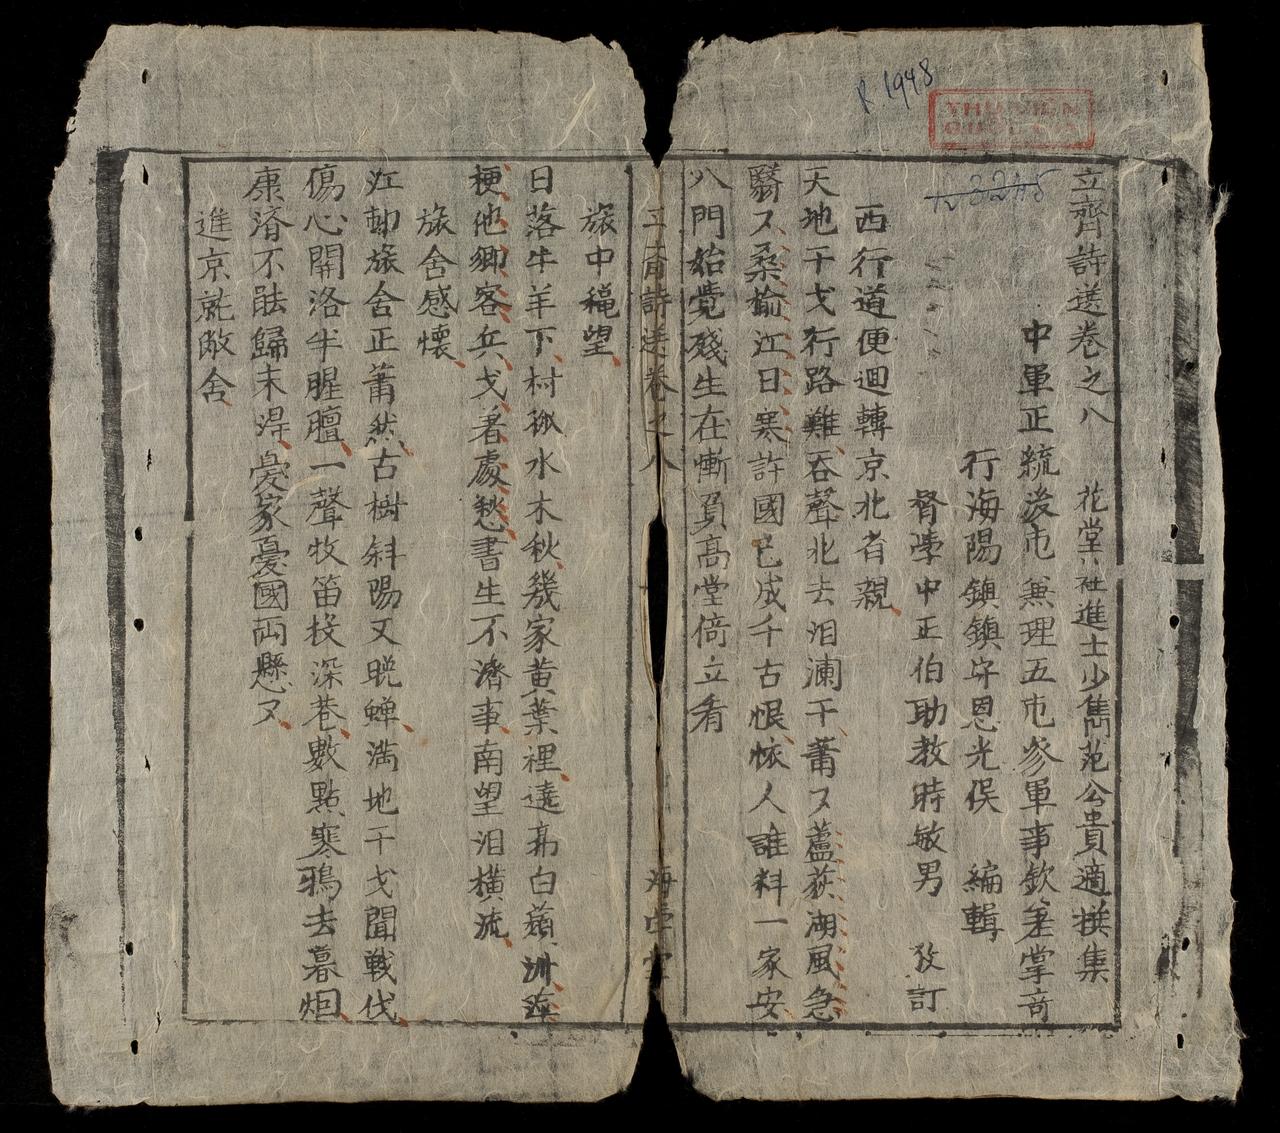 R 1948
THƯ VIỆN
QUỐC GIA
立齊詩送卷之八　花堂進士少雋范公貴適撰集
中軍正統後屯無理五屯參軍事欽差掌奇
行海陽鎮鎮守恩光侯　編輯
督學中正伯助教時敏男　攷訂
西行道便迴轉京北省親
天地干戈行路難吞聲北去泪瀾干蕭又蘆荻湖風急
翳又桑揄江日寒許國已成千古恨恠人誰料一家安
入門始覺殘生在慚負高堂倚立看
立齊詩送卷之八　海學堂
旅中穐望
日落牛羊下村孤水木秋幾家黄葉裡遠舟白蘋洲萍
梗他鄉客兵戈看處愁書生不濟事南望泪橫流
旅舍感懷
江邨旅舍正蕭然古樹斜陽又晚蟬滿地干戈聞戰伐
傷心關洛半腥膻一聲牧笛投深巷數點寒鴉去暮烟
康濟不能歸未淂憂家憂國両懸又
進京就敝舍